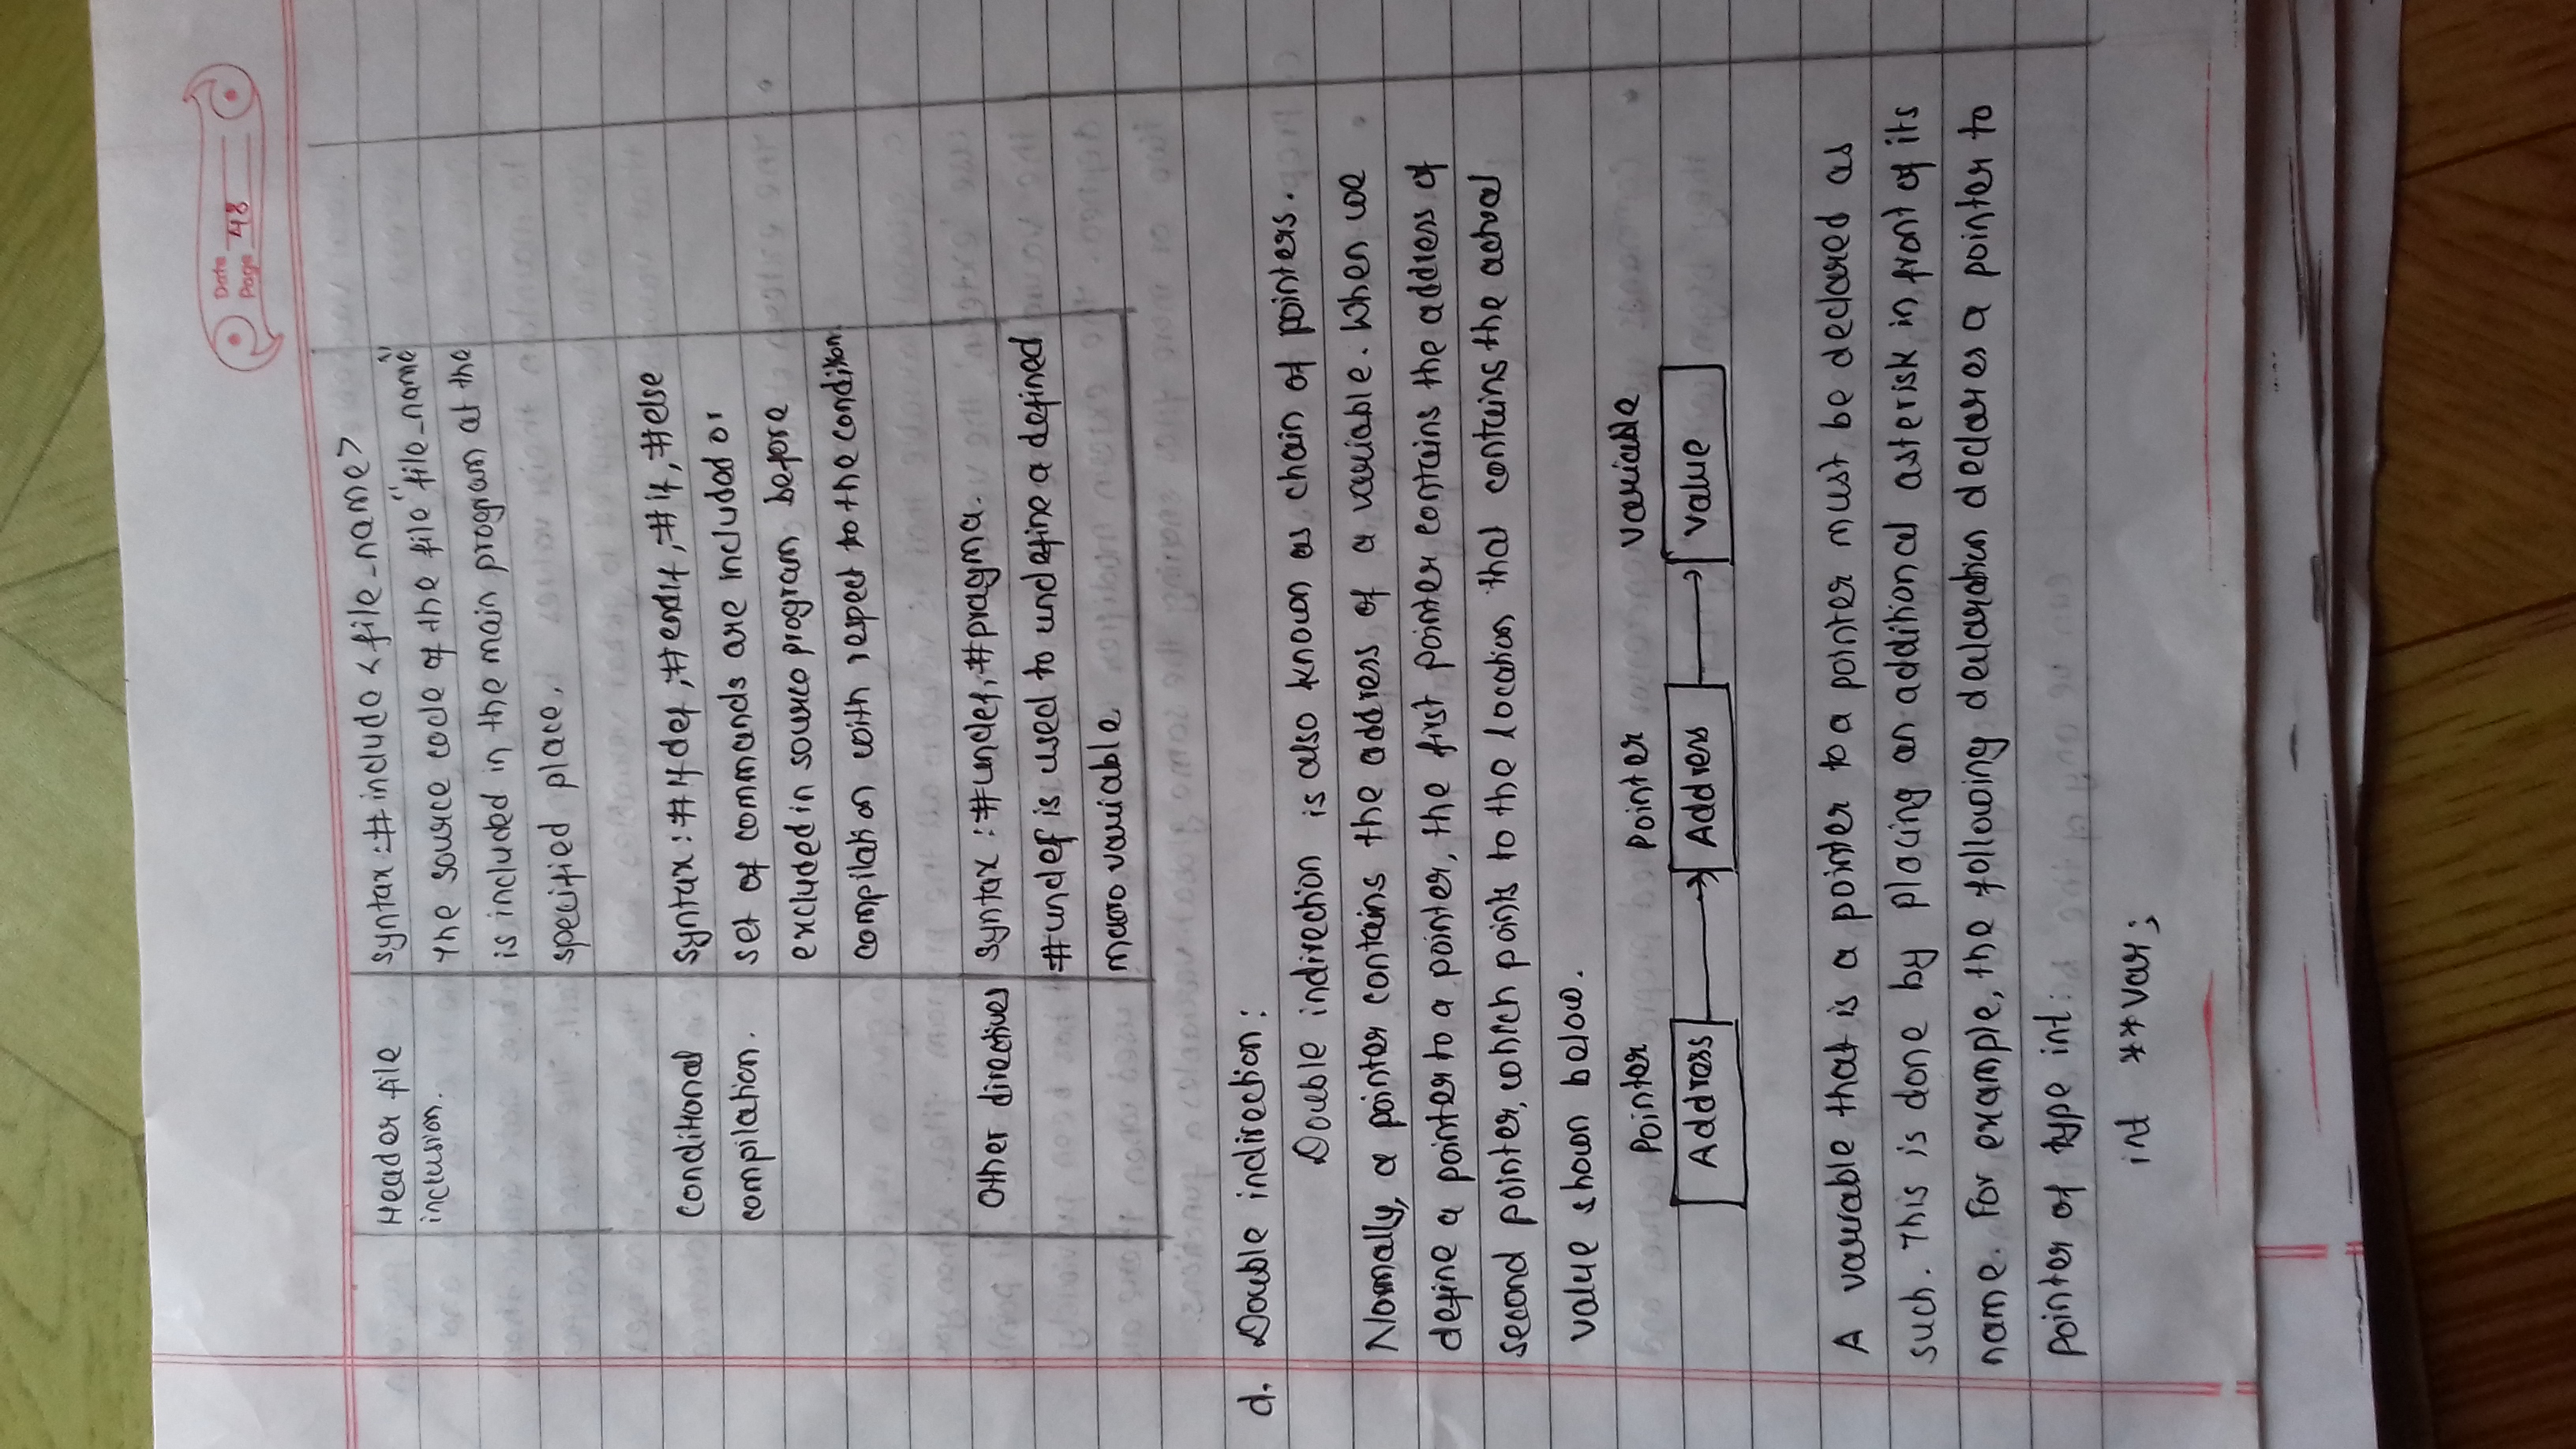 Date
Page 48
Header file
inclusion.
syntax :# include < file_name>
The source code of the file "file_name"
is included in the main program at the
specified place.
Conditional
compilation.
syntax : # ifdef ,# endif , # if , #else
set of commands are included or
excluded in source program before
compilation with respect to the condition
Other directives
syntax : #undef, #pragma.
#undef is used to undefine a defined
macro variable
d. Double indirection :
Double indirection is also known as chain of pointers.
Normally, a pointer contains the address of a variable. When we
define a pointer to a pointer, the first pointer contains the address of
second pointer, which points to the location that contains the actual
value shown below.
Pointer Pointer variable
Address Address value
A variable that is a pointer to a pointer must be declared as
such. This is done by placing an additional asterisk in front of its
name. For example, the following declaration declares a pointer to
pointer of type int:
int **var;